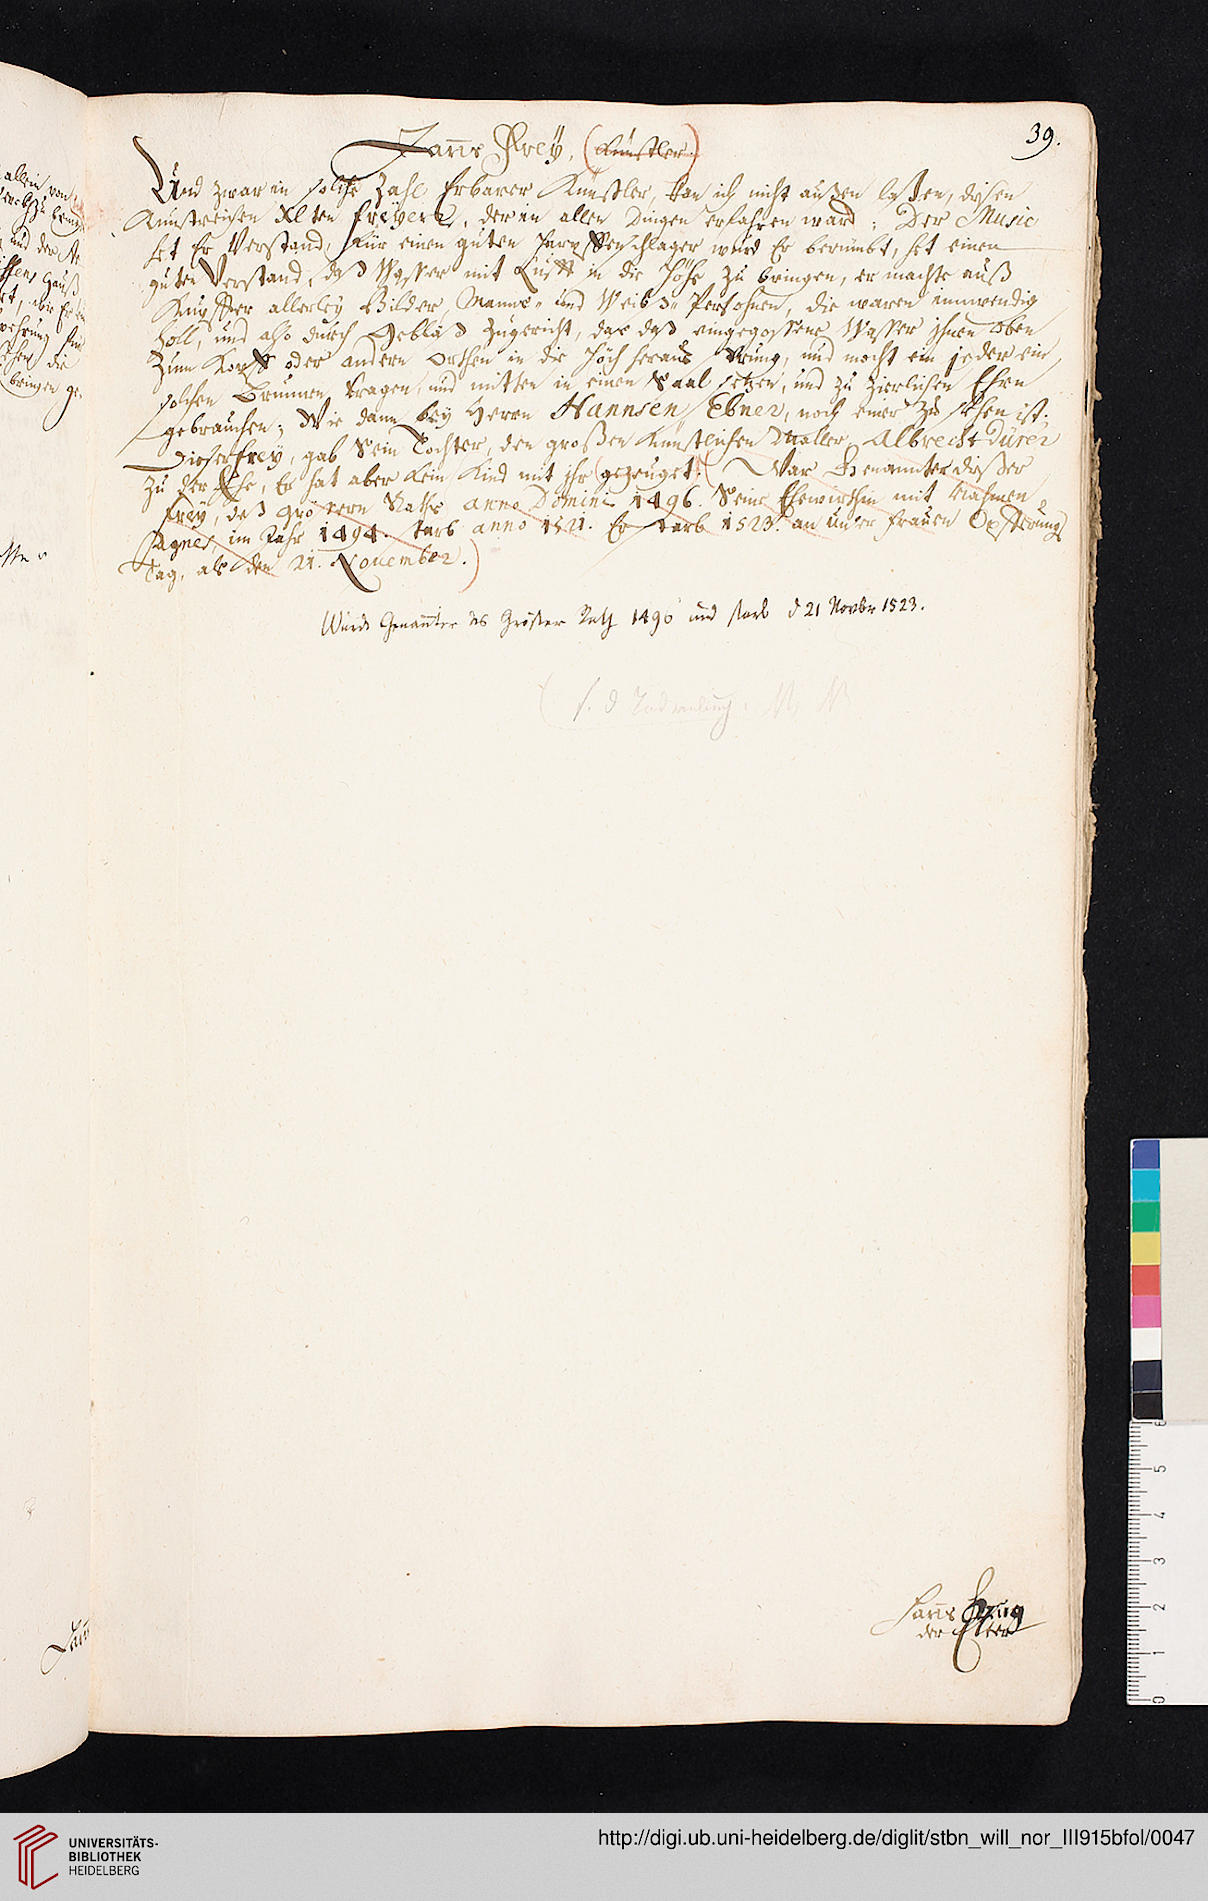 39.
Hanns Frey, (Künstler)
Und zwar in solche Zahl Erbarer Künstler, kan ich nicht außen laßen, disen
Kunstreichen Alten Freyen, der in allen Dingen erfahren ward; Der Music
het Er Verstand, für einen guten Harpffenschlager wurd Er berümbt, het einen
guten Verstand, daß Wasser mit Lufft in die Höhe zu bringen, er machte auß
Kupffer allerley Bilder, Manns- und Weibs- Persohnen, die waren innwendig
holl, und also durch Gebläß zugericht, das daß eingegossene Wasser ihnen oben
zum Kopff oder andern Orthen in die Höch heraus sprung, und mocht ein jeder ein
solchen Brunnen tragen, und mitten in einen Saal setzen, und zu zierlichen Ehrn
gebrauchen; Wie dann bey Herrn Hannsen Ebner, noch einer zu sehen ist.
Dieser Frey, gab Sein Tochter, den großen Künstlichen Maller Albrecht Dürer
zu der Ehe, Er hat aber kein Kind mit ihr gezeuget. (War Genannter dißer
Frey, deß größern Raths anno Domini 1496. Seine Ehewirthin mit Nahmen
Agnes, im Jahr 1494. starb anno 1521. Er starb 1523. an unser Frauen Opfferungs
Tag, als den 21. November.)
Wurde Genannter des Grösern Raths 1496 und starb d 21 Novbr 1523.
Hanns Krug
der Elter
allein von
und der
bringen ge-
UNIVERSITÄTS-
BIBLIOTHEK
HEIDELBERG
http://digi.ub.uni-heidelberg.de/diglit/stbn_will_nor_III915bfol/0047
6
5
4
3
2
1
0